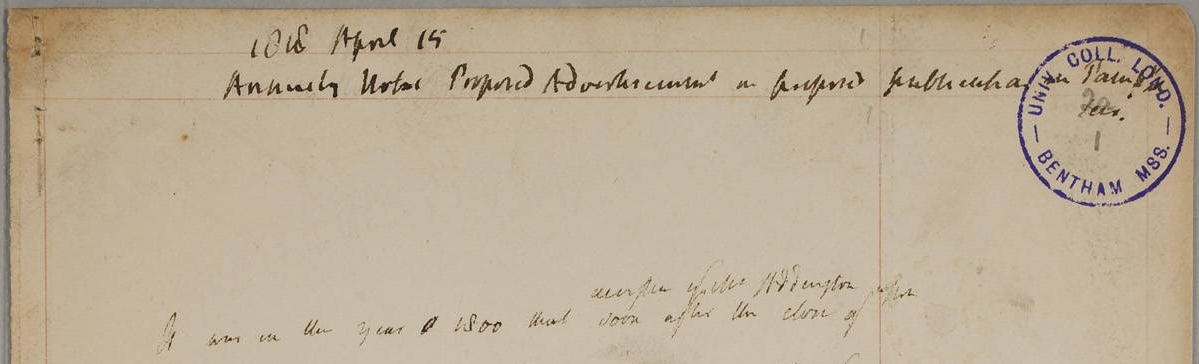 1818 April 15
Annuity Notes Proposed Advertisement on proposed publication in Pamph
lets.
UNIV. COLL. LOND.
BENTHAM MSS.
1
of the Addington
It was in the year 1800 that soon after the close of